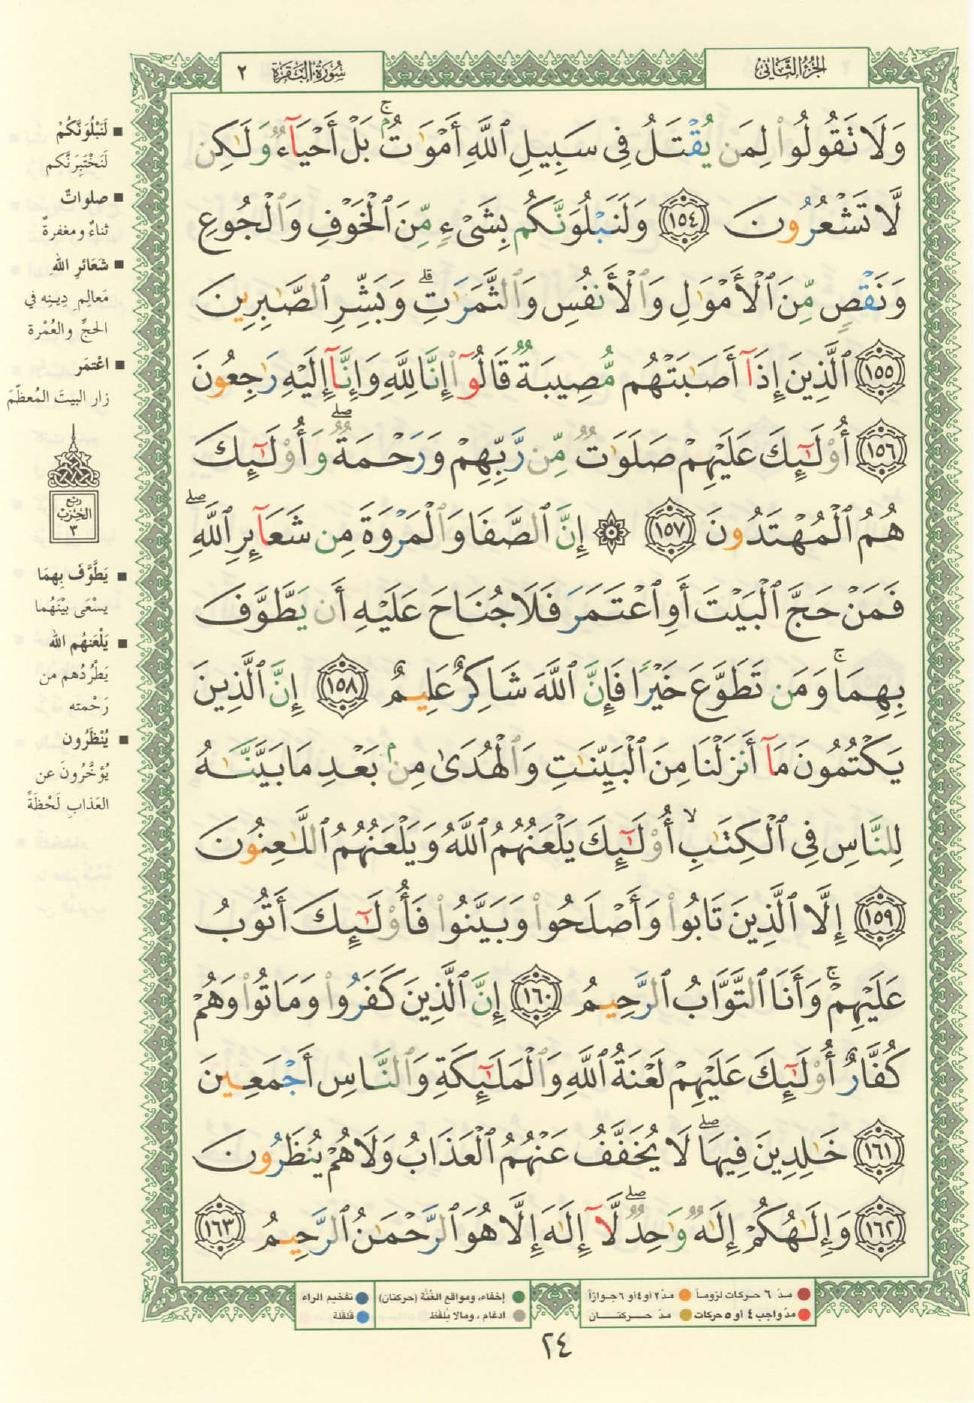 الجزء الثاني
سورة البقرة ٢
وَلَا تَقُولُوا۟ لِمَن يُقْتَلُ فِى سَبِيلِ ٱللَّهِ أَمْوَٰتٌۢ ۚ بَلْ أَحْيَآءٌ وَلَـٰكِن
لَّا تَشْعُرُونَ ١٥٤ وَلَنَبْلُوَنَّكُم بِشَىْءٍ مِّنَ ٱلْخَوْفِ وَٱلْجُوعِ
وَنَقْصٍ مِّنَ ٱلْأَمْوَٰلِ وَٱلْأَنفُسِ وَٱلثَّمَرَٰتِ ۗ وَبَشِّرِ ٱلصَّـٰبِرِينَ
١٥٥ ٱلَّذِينَ إِذَآ أَصَـٰبَتْهُم مُّصِيبَةٌ قَالُوٓا۟ إِنَّا لِلَّهِ وَإِنَّآ إِلَيْهِ رَٰجِعُونَ
١٥٦ أُو۟لَـٰٓئِكَ عَلَيْهِمْ صَلَوَٰتٌ مِّن رَّبِّهِمْ وَرَحْمَةٌ ۖ وَأُو۟لَـٰٓئِكَ
هُمُ ٱلْمُهْتَدُونَ ١٥٧ ۞ إِنَّ ٱلصَّفَا وَٱلْمَرْوَةَ مِن شَعَآئِرِ ٱللَّهِ ۖ
فَمَنْ حَجَّ ٱلْبَيْتَ أَوِ ٱعْتَمَرَ فَلَا جُنَاحَ عَلَيْهِ أَن يَطَّوَّفَ
بِهِمَا ۚ وَمَن تَطَوَّعَ خَيْرًا فَإِنَّ ٱللَّهَ شَاكِرٌ عَلِيمٌ ١٥٨ إِنَّ ٱلَّذِينَ
يَكْتُمُونَ مَآ أَنزَلْنَا مِنَ ٱلْبَيِّنَـٰتِ وَٱلْهُدَىٰ مِنۢ بَعْدِ مَا بَيَّنَّـٰهُ
لِلنَّاسِ فِى ٱلْكِتَـٰبِ ۙ أُو۟لَـٰٓئِكَ يَلْعَنُهُمُ ٱللَّهُ وَيَلْعَنُهُمُ ٱللَّـٰعِنُونَ
١٥٩ إِلَّا ٱلَّذِينَ تَابُوا۟ وَأَصْلَحُوا۟ وَبَيَّنُوا۟ فَأُو۟لَـٰٓئِكَ أَتُوبُ
عَلَيْهِمْ ۚ وَأَنَا ٱلتَّوَّابُ ٱلرَّحِيمُ ١٦٠ إِنَّ ٱلَّذِينَ كَفَرُوا۟ وَمَاتُوا۟ وَهُمْ
كُفَّارٌ أُو۟لَـٰٓئِكَ عَلَيْهِمْ لَعْنَةُ ٱللَّهِ وَٱلْمَلَـٰٓئِكَةِ وَٱلنَّاسِ أَجْمَعِينَ
١٦١ خَـٰلِدِينَ فِيهَا ۖ لَا يُخَفَّفُ عَنْهُمُ ٱلْعَذَابُ وَلَا هُمْ يُنظَرُونَ
١٦٢ وَإِلَـٰهُكُمْ إِلَـٰهٌ وَٰحِدٌ ۖ لَّآ إِلَـٰهَ إِلَّا هُوَ ٱلرَّحْمَـٰنُ ٱلرَّحِيمُ ١٦٣
■ لَنَبْلُوَنَّكُمْ
لَنَخْتَبِرَنَّكم
■ صلواتٌ
ثناءٌ ومغفرةٌ
■ شَعَائرِ الله
مَعالِمِ دِينِه في
الحجِّ والعُمْرة
■ اعْتَمَر
زار البيتَ المُعظَّمَ
ربع
الحزب
٣
■ يَطَّوَّفَ بِهِمَا
يسْعَى بيْنَهُما
■ يَلْعَنهُم الله
يَطْرُدُهم من
رَحْمته
■ يُنْظَرُون
يُؤخَّرُونَ عن
العَذابِ لَحْظَةً
مدّ ٦ حركات لزوماً
مدّ ٢ او ٤ او ٦ جوازاً
مدّ واجب ٤ او ٥ حركات
مدّ حــركتــــان
إخفاء، ومواقع الغُنَّة (حركتان)
ادغام ، ومالا يُلفَظ
تفخيم الراء
قلقلة
٢٤